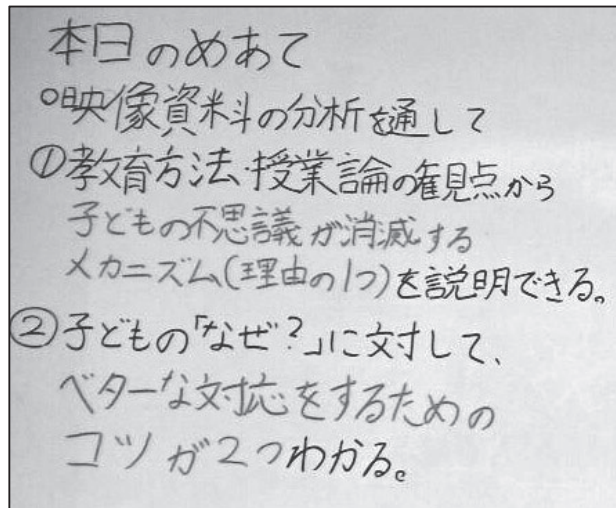 本日のめあて
○映像資料の分析を通して
①教育方法・授業論の観点から
子どもの不思議が消滅する
メカニズム(理由の1つ)を説明できる。
②子どもの「なぜ?」に対して、
ベターな対応をするための
コツが2つわかる。